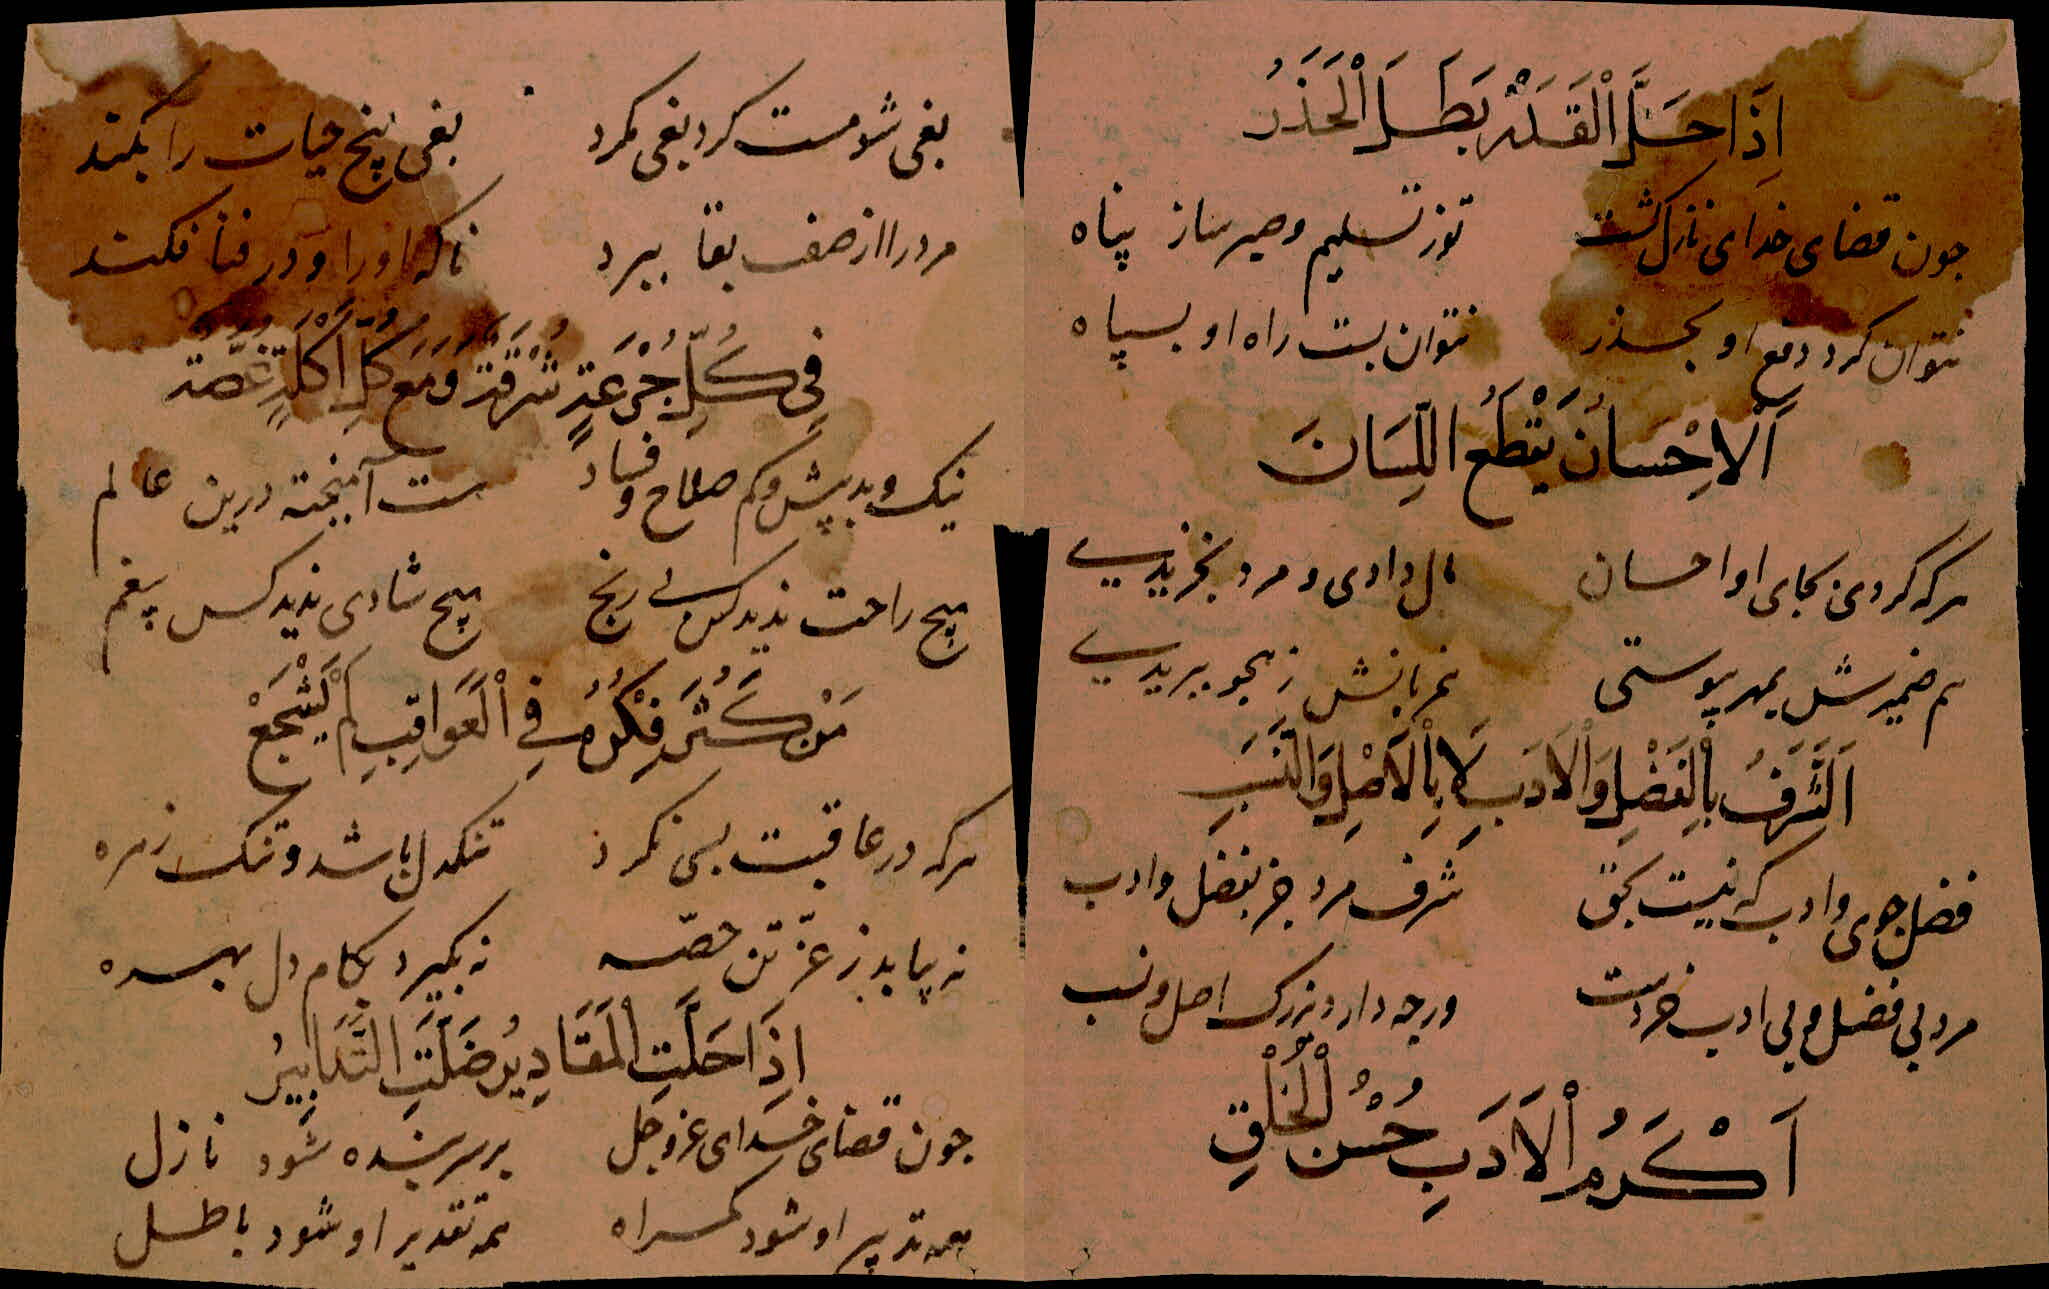 اِذَا حَلَّ الْقَدَرُ بَطَلَ الْحَذَرُ
جون قضای خدای نازل کشت توز تسلیم و صبر ساز پناه
نتوان کرد دفع او بحذر نتوان بست راه او بسپاه
اَلْاِحْسَانُ يَقْطَعُ اللِّسَانَ
هرکه کردی بجای او احسان مال دادی و مرد بخریدی
هم ضمیرش بمهر پیوستی هم زبانش ز هجو ببریدی
اَلشَّرَفُ بِالْفَضْلِ وَالْاَدَبِ لَا بِالْاَصْلِ وَالنَّسَبِ
فضل جوی و ادب که نیست بحق شرف مرد جز بفضل و ادب
مرد بی فضل و بی ادب خردست ورجه دارد بزرک اصل و نسب
اَكْرَمُ الْاَدَبِ حُسْنُ الْخُلْقِ
بغی شومست کرد بغی مکرد بغی بیخ حیات را بکند
مرد را از صف بقا ببرد ناکه او را و در فنا فکند
فِى كُلِّ جُرْعَةٍ شَرْقَةٌ وَمَعَ كُلِّ اَكْلَةٍ غُصَّةٌ
نیک و بد بیش و کم صلاح و فساد هست آمیخته درین عالم
هیچ راحت ندید کس بی رنج هیچ شادی ندید کس بیغم
مَنْ كَثُرَ فِكْرُهُ فِى الْعَوَاقِبِ لَمْ يَشْجَعْ
هرکه در عاقبت بسی نکرد تنکدل باشد و تنک زهره
نه بیابد ز عزّ تن حصّه نه بکیرد بکام دل بهره
اِذَا حَلَّتِ الْمَقَادِيرُ ضَلَّتِ التَّدَابِيرُ
جون قضای خدای عز و جل برسر بنده شود نازل
همه تدبیر او شود کمراه همه تقدیر او شود باطل